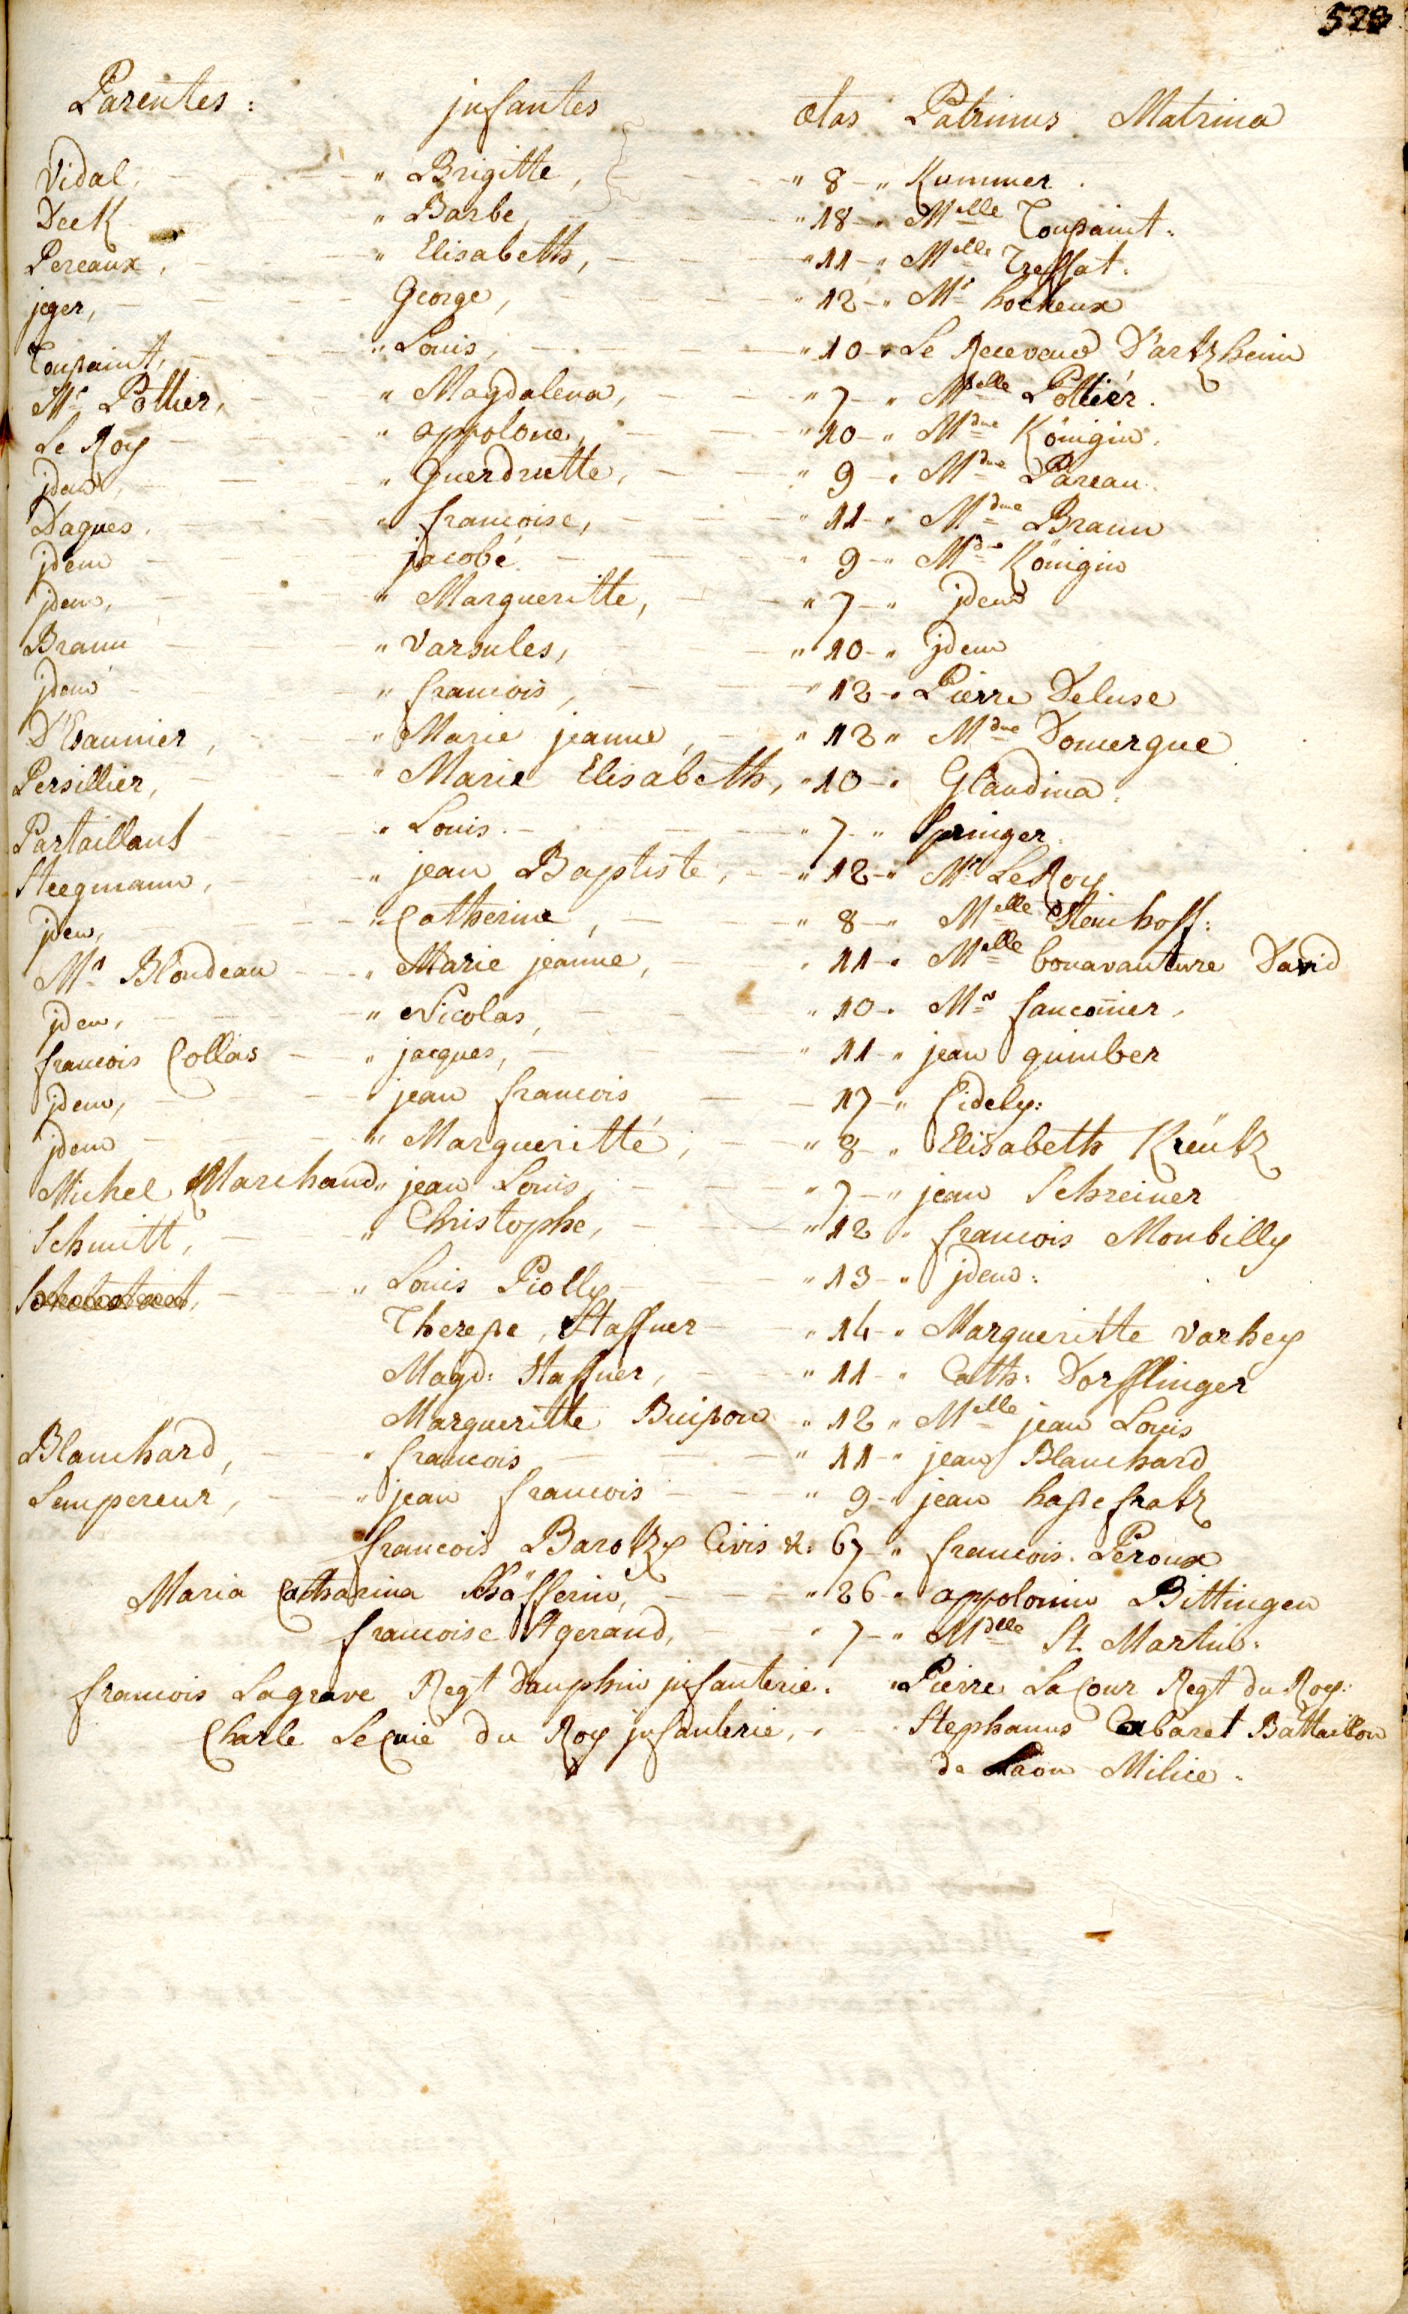 529
Parentes: jnfantes ætas Patrinus Matrina
Vidal, Brigitte, 8 Kummer.
Deck Barbe, 18 Melle Toussaint.
Pereaux, Elisabeth, 11 Melle Treffat.
jeger, George, 12 Mr hocheux
Toussaint, Louis, 10 Le Receveur D'artzheim
Mr Pottier, Magdalena, 7 Melle Pottiér.
Le Roy appolone, 10 Mdme Königin.
jdem, Guerdrutte, 9 Mdme Pareau.
Daques, francoise, 11 Mdme Braun
jdem jacobé. 9 Mdme Königin
jdem, Margueritte, 7 jdem
Braun Varsules, 10 jdem
jdem francois, 12 Pierre Deluse
D'Esaunier, Marie jeanne, 12 Mdme Domergue
Persillier, Marie Elisabeth, 10 Glaudina.
Partaillant Louis. 7 Springer.
Steegmann, jean Baptiste, 12 Mr LeRoy
jdem, Catherine, 8 Melle Steinhoff:
Mr Blondeau Marie jeanne, 11 Melle bonavanture David
jdem, Nicolas, 10 Mr fauconier,
francois Collas jacques, 11 jean guimber
jdem, jean francois 17 fidely:
jdem Margueritté, 8 Elisabeth Kreütz
Michel Marchand jean Louis, 7 jean Schreiner
Schmitt, Christophe, 12 francois Monbilly
Louis Piolly 13 jdem:
Therese, Staffner 14 Margueritte varhey
Magd: Staffner, 11 Cath: Dorfflinger
Margueritte Buisson 12 Melle jean Louis
Blanchard, francois 11 jean Blanchard
Lempereur, jean francois 9 jean hassefratz
francois Barotzy Civis &: 67 francois. Peroux
Maria Catharina Schäfferin, 26 appolonin Bittingen
francoise St gerand, 7 Mdelle St. Martin.
francois Lagrave Regt Dauphin jnfanterie. Pierre LaCour Regt du Roy.
Charle LeCuie du Roy jnfanterie, Stephanus Cabaret Battaillon
de Laon Milice.